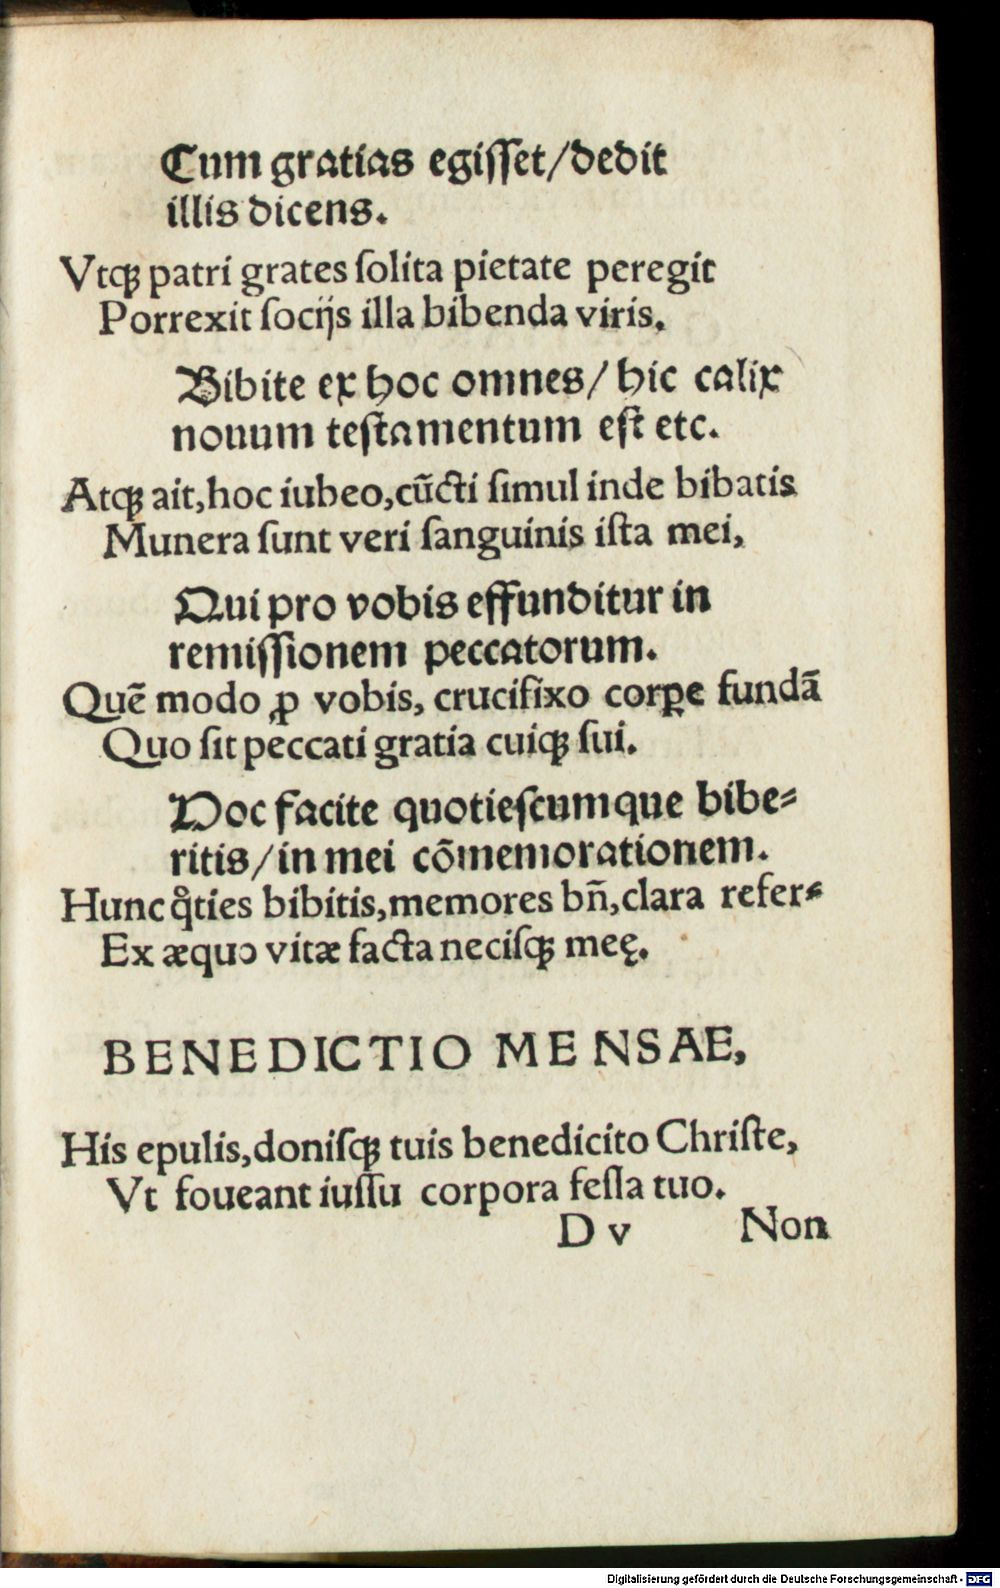 Cum gratias egiſſet/dedit
illis dicens.
Vtqꝫ patri grates ſolita pietate peregit
Porrexit ſocijs illa bibenda viris.
Bibite ex hoc omnes/ hic calix
nouum teſtamentum eſt etc.
Atqꝫ ait,hoc iubeo,cūcti ſimul inde bibatis
Munera ſunt veri ſanguinis iſta mei,
Qui pro vobis effunditur in
remiſſionem peccatorum.
Quē modo ꝓ vobis, crucifixo corꝑe fundā
Quo ſit peccati gratia cuiqꝫ ſui.
Hoc facite quotieſcumque bibe⸗
ritis/in mei cōmemorationem.
Hunc qͦties bibitis,memores bn̄,clara refer⸗
Ex æquo vitæ facta neciſqꝫ meę.
BENEDICTIO MENSAE,
His epulis,doniſqꝫ tuis benedicito Chriſte,
Vt foueant iuſſu corpora feſſa tuo.
D v Non
Digitalisierung gefördert durch die Deutsche Forschungsgemeinschaft - DFG